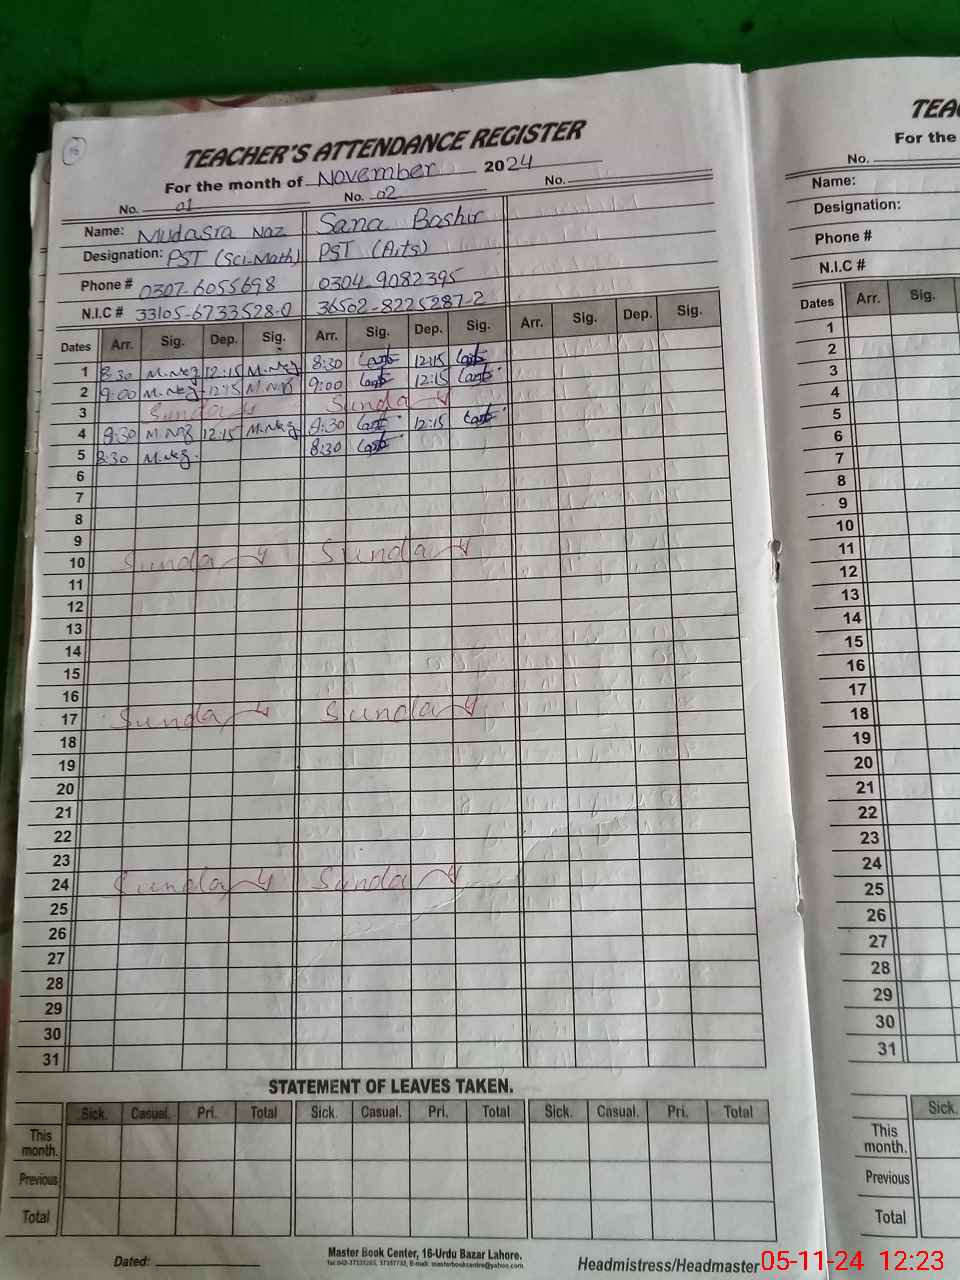 16
TEACHER'S ATTENDANCE REGISTER
For the month of November 2024
No. 01 No. 02 No.
Name: Mudasra Naz Sana Bashir
Designation: PST (Sci-Math) PST (Arts)
Phone # 0307-6055698 0304-9082395
N.I.C # 33105-6733528-0 36502-8225287-2
Dates Arr. Sig. Dep. Sig. Arr. Sig. Dep. Sig. Arr. Sig. Dep. Sig.
1 8:30 M.Naz 12:15 M.Naz 8:30 12:15
2 9:00 M.Naz 12:15 M.Naz 9:00 12:15
3 Sunday Sunday
4 8:30 M.Naz 12:15 M.Naz 8:30 12:15
5 8:30 M.Naz. 8:30
6
7
8
9
10 Sunday Sunday
11
12
13
14
15
16
17 Sunday Sunday
18
19
20
21
22
23
24 Sunday Sunday
25
26
27
28
29
30
31
STATEMENT OF LEAVES TAKEN.
Sick. Casual. Pri. Total Sick. Casual. Pri. Total Sick. Casual. Pri. Total
This month.
Previous
Total
Dated:
Master Book Center, 16-Urdu Bazar Lahore.
Headmistress/Headmaster
TEA
For the
No.
Name:
Designation:
Phone #
N.I.C #
Dates Arr. Sig.
1
2
3
4
5
6
7
8
9
10
11
12
13
14
15
16
17
18
19
20
21
22
23
24
25
26
27
28
29
30
31
Sick.
This month.
Previous
Total
05-11-24 12:23